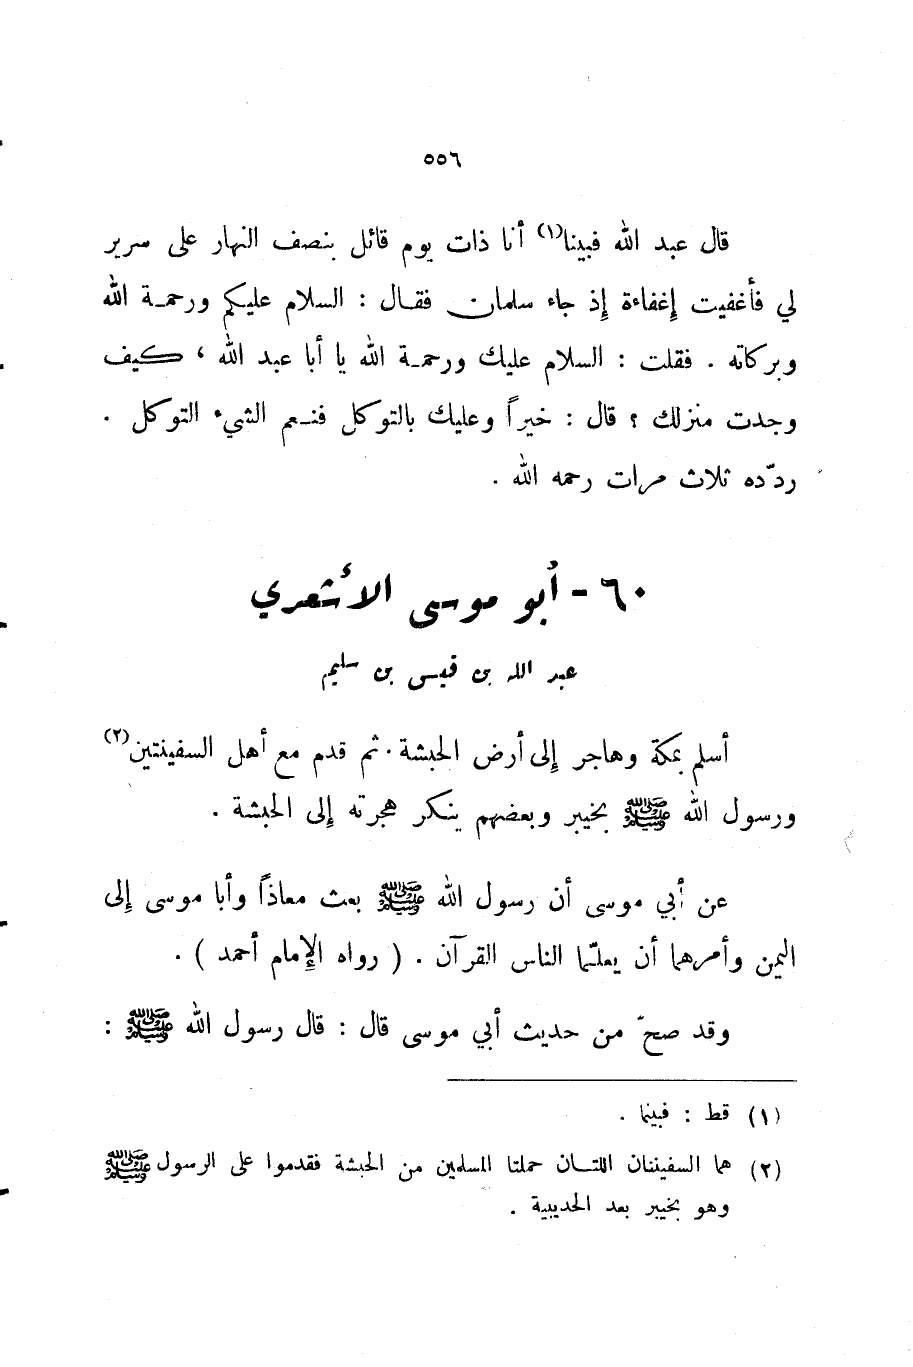 ٥٥٦
قال عبد الله فبينا(١) أنا ذات يوم قائل بنصف النهار على سرير
لي فأغفيت إغفاءة إذ جاء سلمان فقال : السلام عليكم ورحمة الله
وبركاته . فقلت : السلام عليك ورحمة الله يا أبا عبد الله ، كيف
وجدت منزلك ؟ قال : خيراً وعليك بالتوكل فنعم الشيء التوكل .
ردّده ثلاث مرات رحمه الله .
٦٠ - أبو موسى الأشعري
عبد الله بن قيس بن سليم
أسلم بمكة وهاجر إلى أرض الحبشة . ثم قدم مع أهل السفينتين(٢)
ورسول الله ﷺ بخيبر وبعضهم ينكر هجرته إلى الحبشة .
عن أبي موسى أن رسول الله ﷺ بعث معاذاً وأبا موسى إلى
اليمن وأمرهما أن يعلّما الناس القرآن . ( رواه الإمام أحمد ) .
وقد صحّ من حديث أبي موسى قال : قال رسول الله ﷺ :
(١) قط : فبينما .
(٢) هما السفينتان اللتان حملتا المسلمين من الحبشة فقدموا على الرسول ﷺ
وهو بخيبر بعد الحديبية .